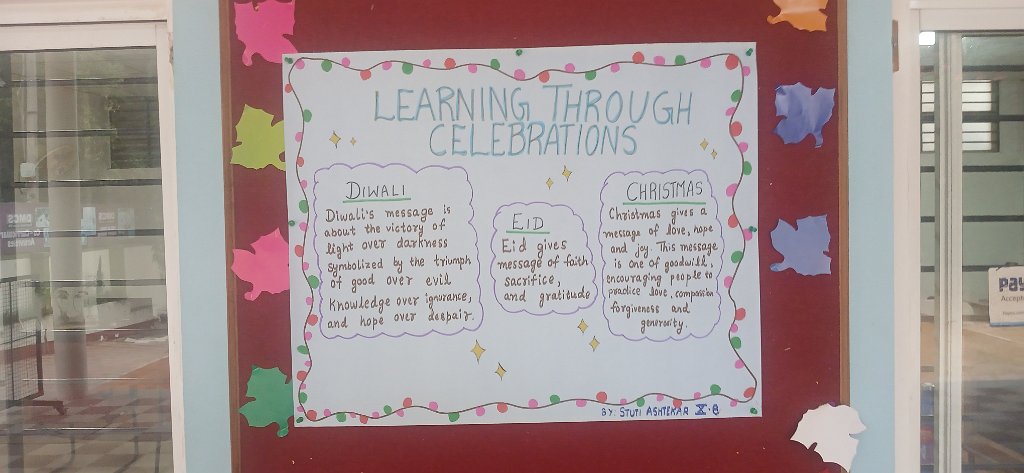 LEARNING THROUGH
CELEBRATIONS
DIWALI
Diwali's message is
about the victory of
light over darkness
symbolized by the triumph
of good over evil
knowledge over ignorance,
and hope over despair.
EID
Eid gives
message of faith
sacrifice,
and gratitude
CHRISTMAS
Christmas gives a
message of love, hope
and joy. This message
is one of goodwill,
encouraging people to
practice love, compassion
forgiveness and
generosity.
BY: STUTI ASHTEKAR X-B
DMCS
Pay
Accept